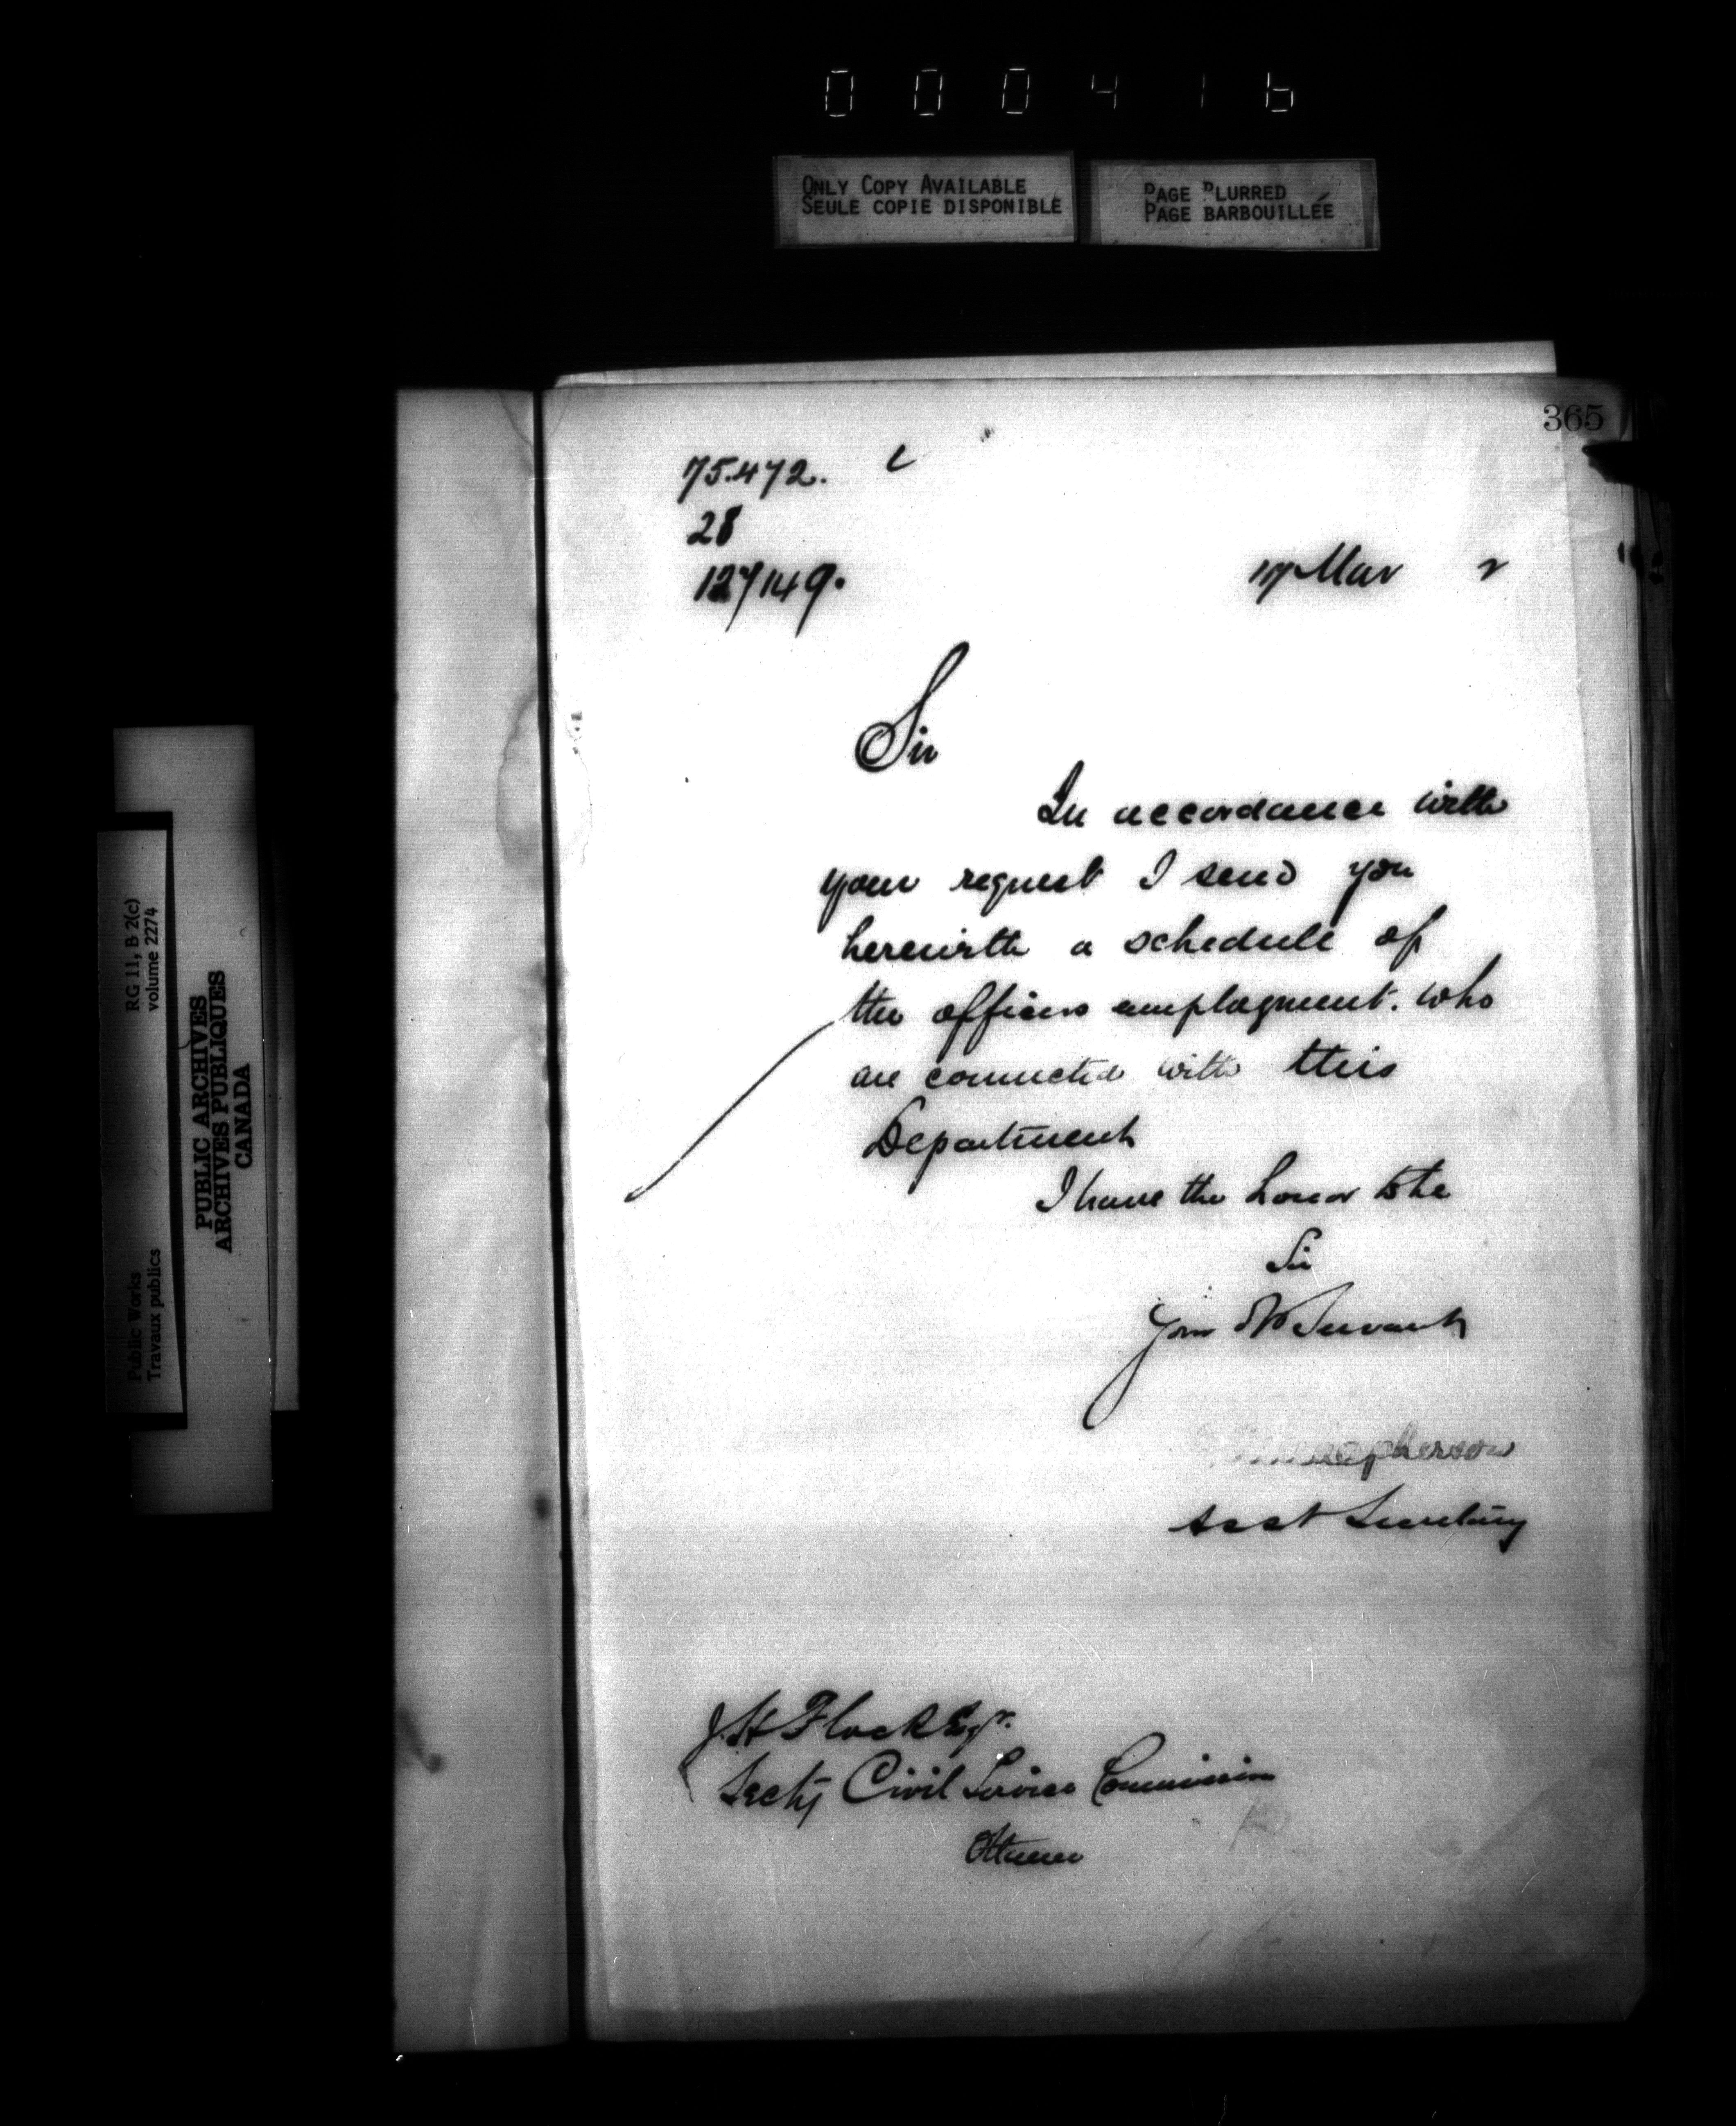 000416
ONLY COPY AVAILABLE
SEULE COPIE DISPONIBLE
PAGE BLURRED
PAGE BARBOUILLÉE
365
75.472.
28
127149.
17 Mar 2
Sir
In accordance with
your request I send you
herewith a schedule of
the officers employment. who
are connected with this
Department
I have the honor to be
Sir
Your Servant
macpherson
Asst Secretary
J.H Flock Esqr.
Secty Civil Service Commission
Ottawa
RG 11, B 2(c)
volume 2274
PUBLIC ARCHIVES
ARCHIVES PUBLIQUES
CANADA
Public Works
Travaux publics